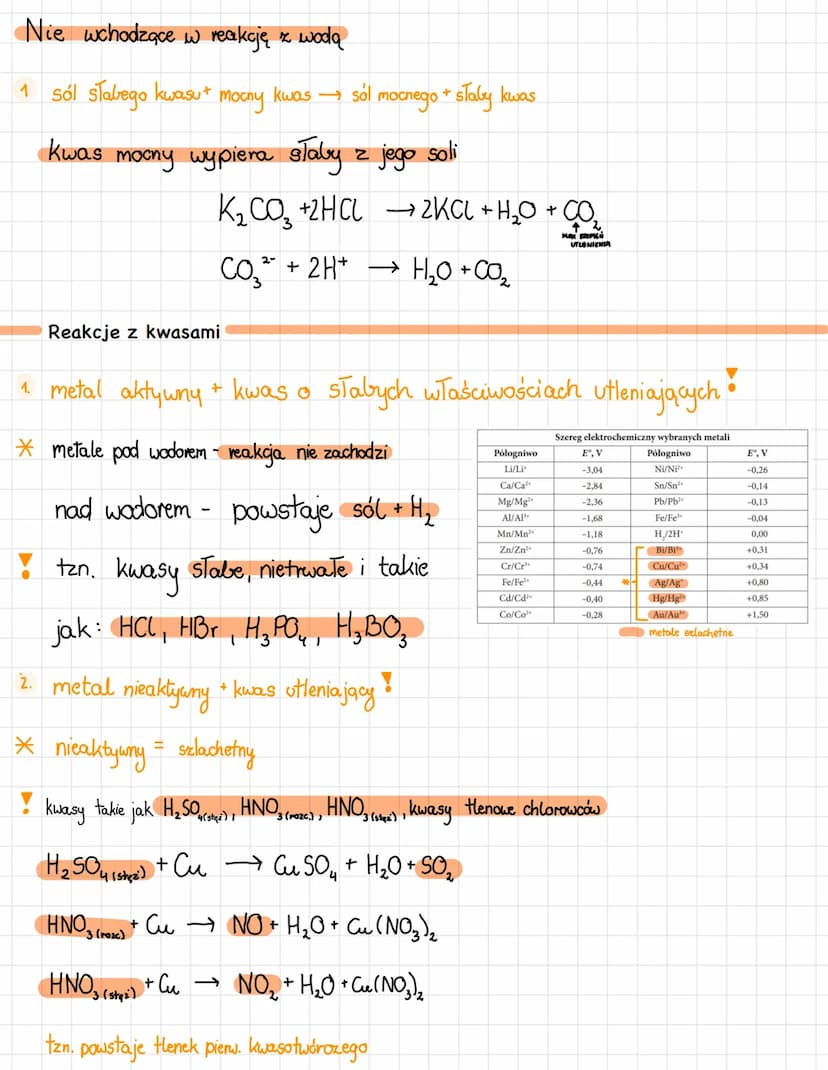 Nie wchodzące w reakcję z wodą
1 sól słabego kwasu + mocny kwas → sól mocnego + słaby kwas
Kwas mocny wypiera słaby z jego soli
K₂CO₃ +2HCl → 2KCl + H₂O + CO₂
↑
MAX STOPIEŃ
UTLENIENIA
CO₃²⁻ + 2H⁺ → H₂O + CO₂
Reakcje z kwasami
1. metal aktywny + kwas o słabych właściwościach utleniających!
* metale pod wodorem - reakcja nie zachodzi
nad wodorem - powstaje sól + H₂
! tzn. kwasy słabe, nietrwałe i takie
jak: HCl, HBr, H₃PO₄, H₃BO₃
Szereg elektrochemiczny wybranych metali
Półogniwo E°, V Półogniwo E°, V
Li/Li⁺ -3,04 Ni/Ni²⁺ -0,26
Ca/Ca²⁺ -2,84 Sn/Sn²⁺ -0,14
Mg/Mg²⁺ -2,36 Pb/Pb²⁺ -0,13
Al/Al³⁺ -1,68 Fe/Fe³⁺ -0,04
Mn/Mn²⁺ -1,18 H₂/2H⁺ 0,00
Zn/Zn²⁺ -0,76 Bi/Bi³⁺ +0,31
Cr/Cr³⁺ -0,74 Cu/Cu²⁺ +0,34
Fe/Fe²⁺ -0,44 * Ag/Ag⁺ +0,80
Cd/Cd²⁺ -0,40 Hg/Hg²⁺ +0,85
Co/Co²⁺ -0,28 Au/Au³⁺ +1,50
metale szlachetne
2. metal nieaktywny + kwas utleniający!
* nieaktywny = szlachetny
! kwasy takie jak H₂SO₄(stęż), HNO₃(rozc.), HNO₃(stęż), kwasy tlenowe chlorowców
H₂SO₄(stęż) + Cu → CuSO₄ + H₂O + SO₂
HNO₃(rozc) + Cu → NO + H₂O + Cu(NO₃)₂
HNO₃(stęż) + Cu → NO₂ + H₂O + Cu(NO₃)₂
tzn. powstaje tlenek pierw. kwasotwórczego